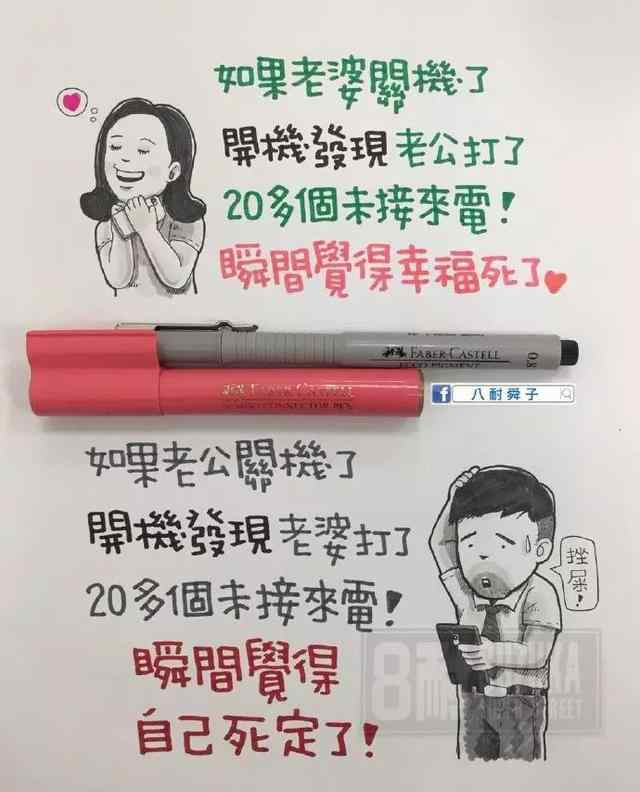 如果老婆關機了
開機發現老公打了
20多個未接來電!
瞬間覺得幸福死了
FABER-CASTELL
ECCO PIGMENT
0.8
FABER-CASTELL
CONNECTOR PEN
f 八耐舜子
如果老公關機了
開機發現老婆打了
20多個未接來電!
挫屎!
瞬間覺得
自己死定了!
8耐
STREET